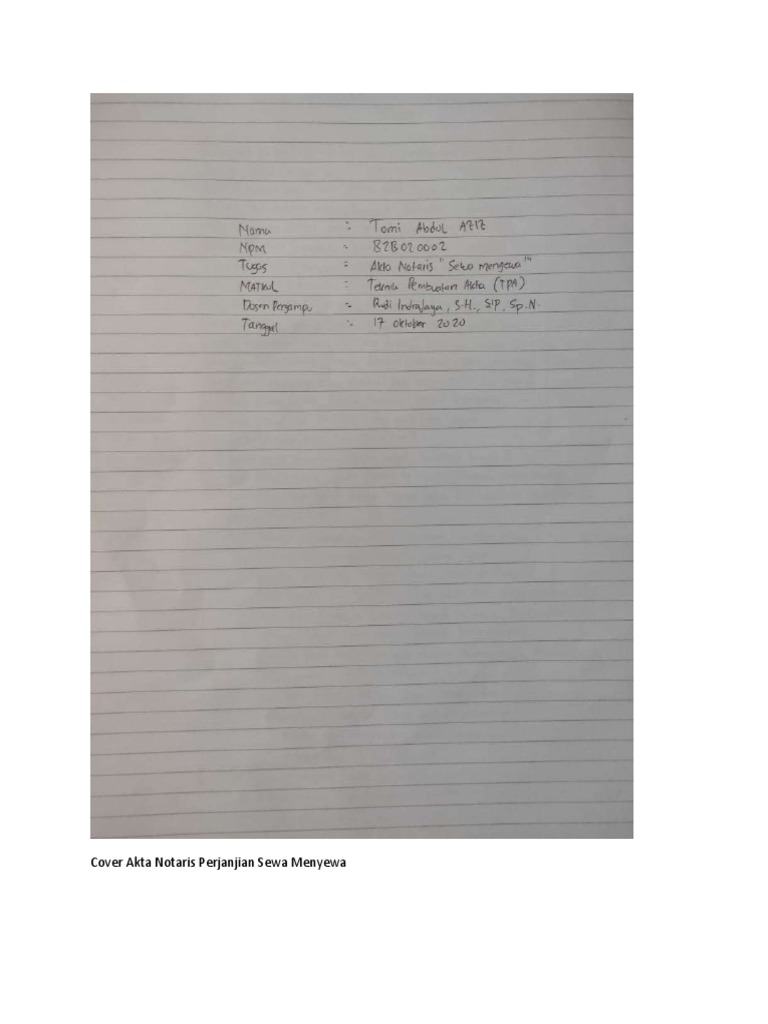 Nama : Tomi Abdul AZIZ
NPM : B2B020002
Tugas : Akta Notaris "Sewa menyewa"
MATKUL : Teknik Pembuatan Akta (TPA)
Dosen Pengampu : Rudi Indrajaya, S.H., SIP, Sp.N.
Tanggal : 17 Oktober 2020
Cover Akta Notaris Perjanjian Sewa Menyewa